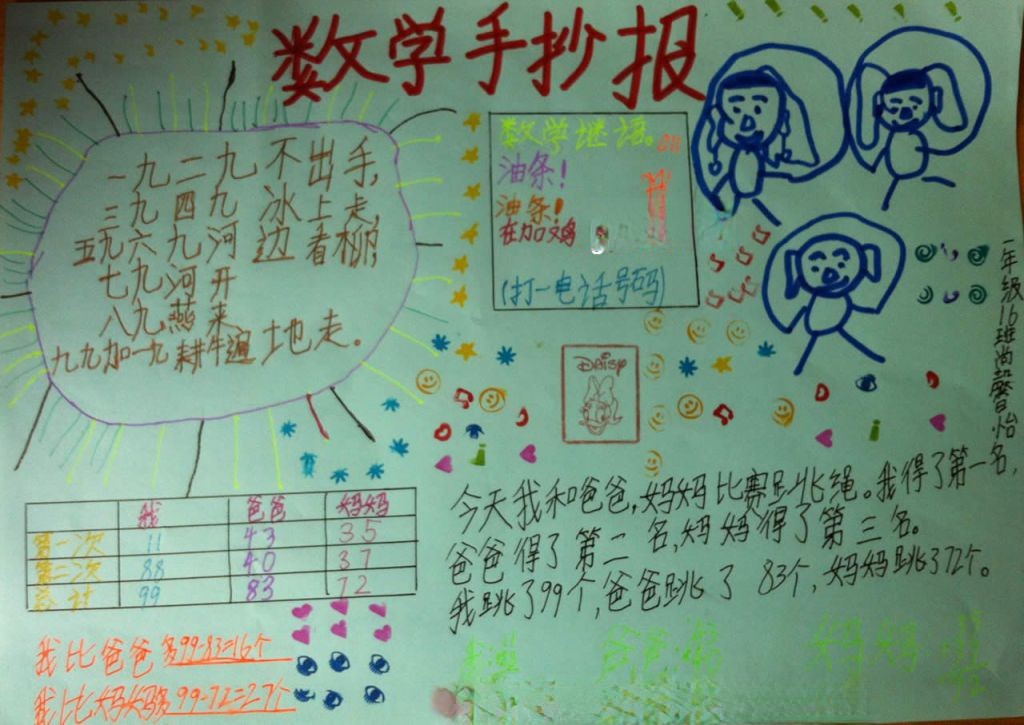 数学手抄报
一九二九不出手,
三九四九冰上走,
五九六九河边看柳,
七九河开
八九燕来
九九加一九耕牛遍地走。
数学谜语。
油条!
油条!
在加鸡
(打一电话号码)
DAISY
一年级16班尚馨怡
我 爸爸 妈妈
第一次 11 43 35
第二次 88 40 37
总计 99 83 72
我比爸爸多99-83=16个
我比妈妈多99-72=27个
今天我和爸爸,妈妈比赛跳绳。我得了第一名,
爸爸得了第二名,妈妈得了第三名。
我跳了99个,爸爸跳了83个,妈妈跳了72个。